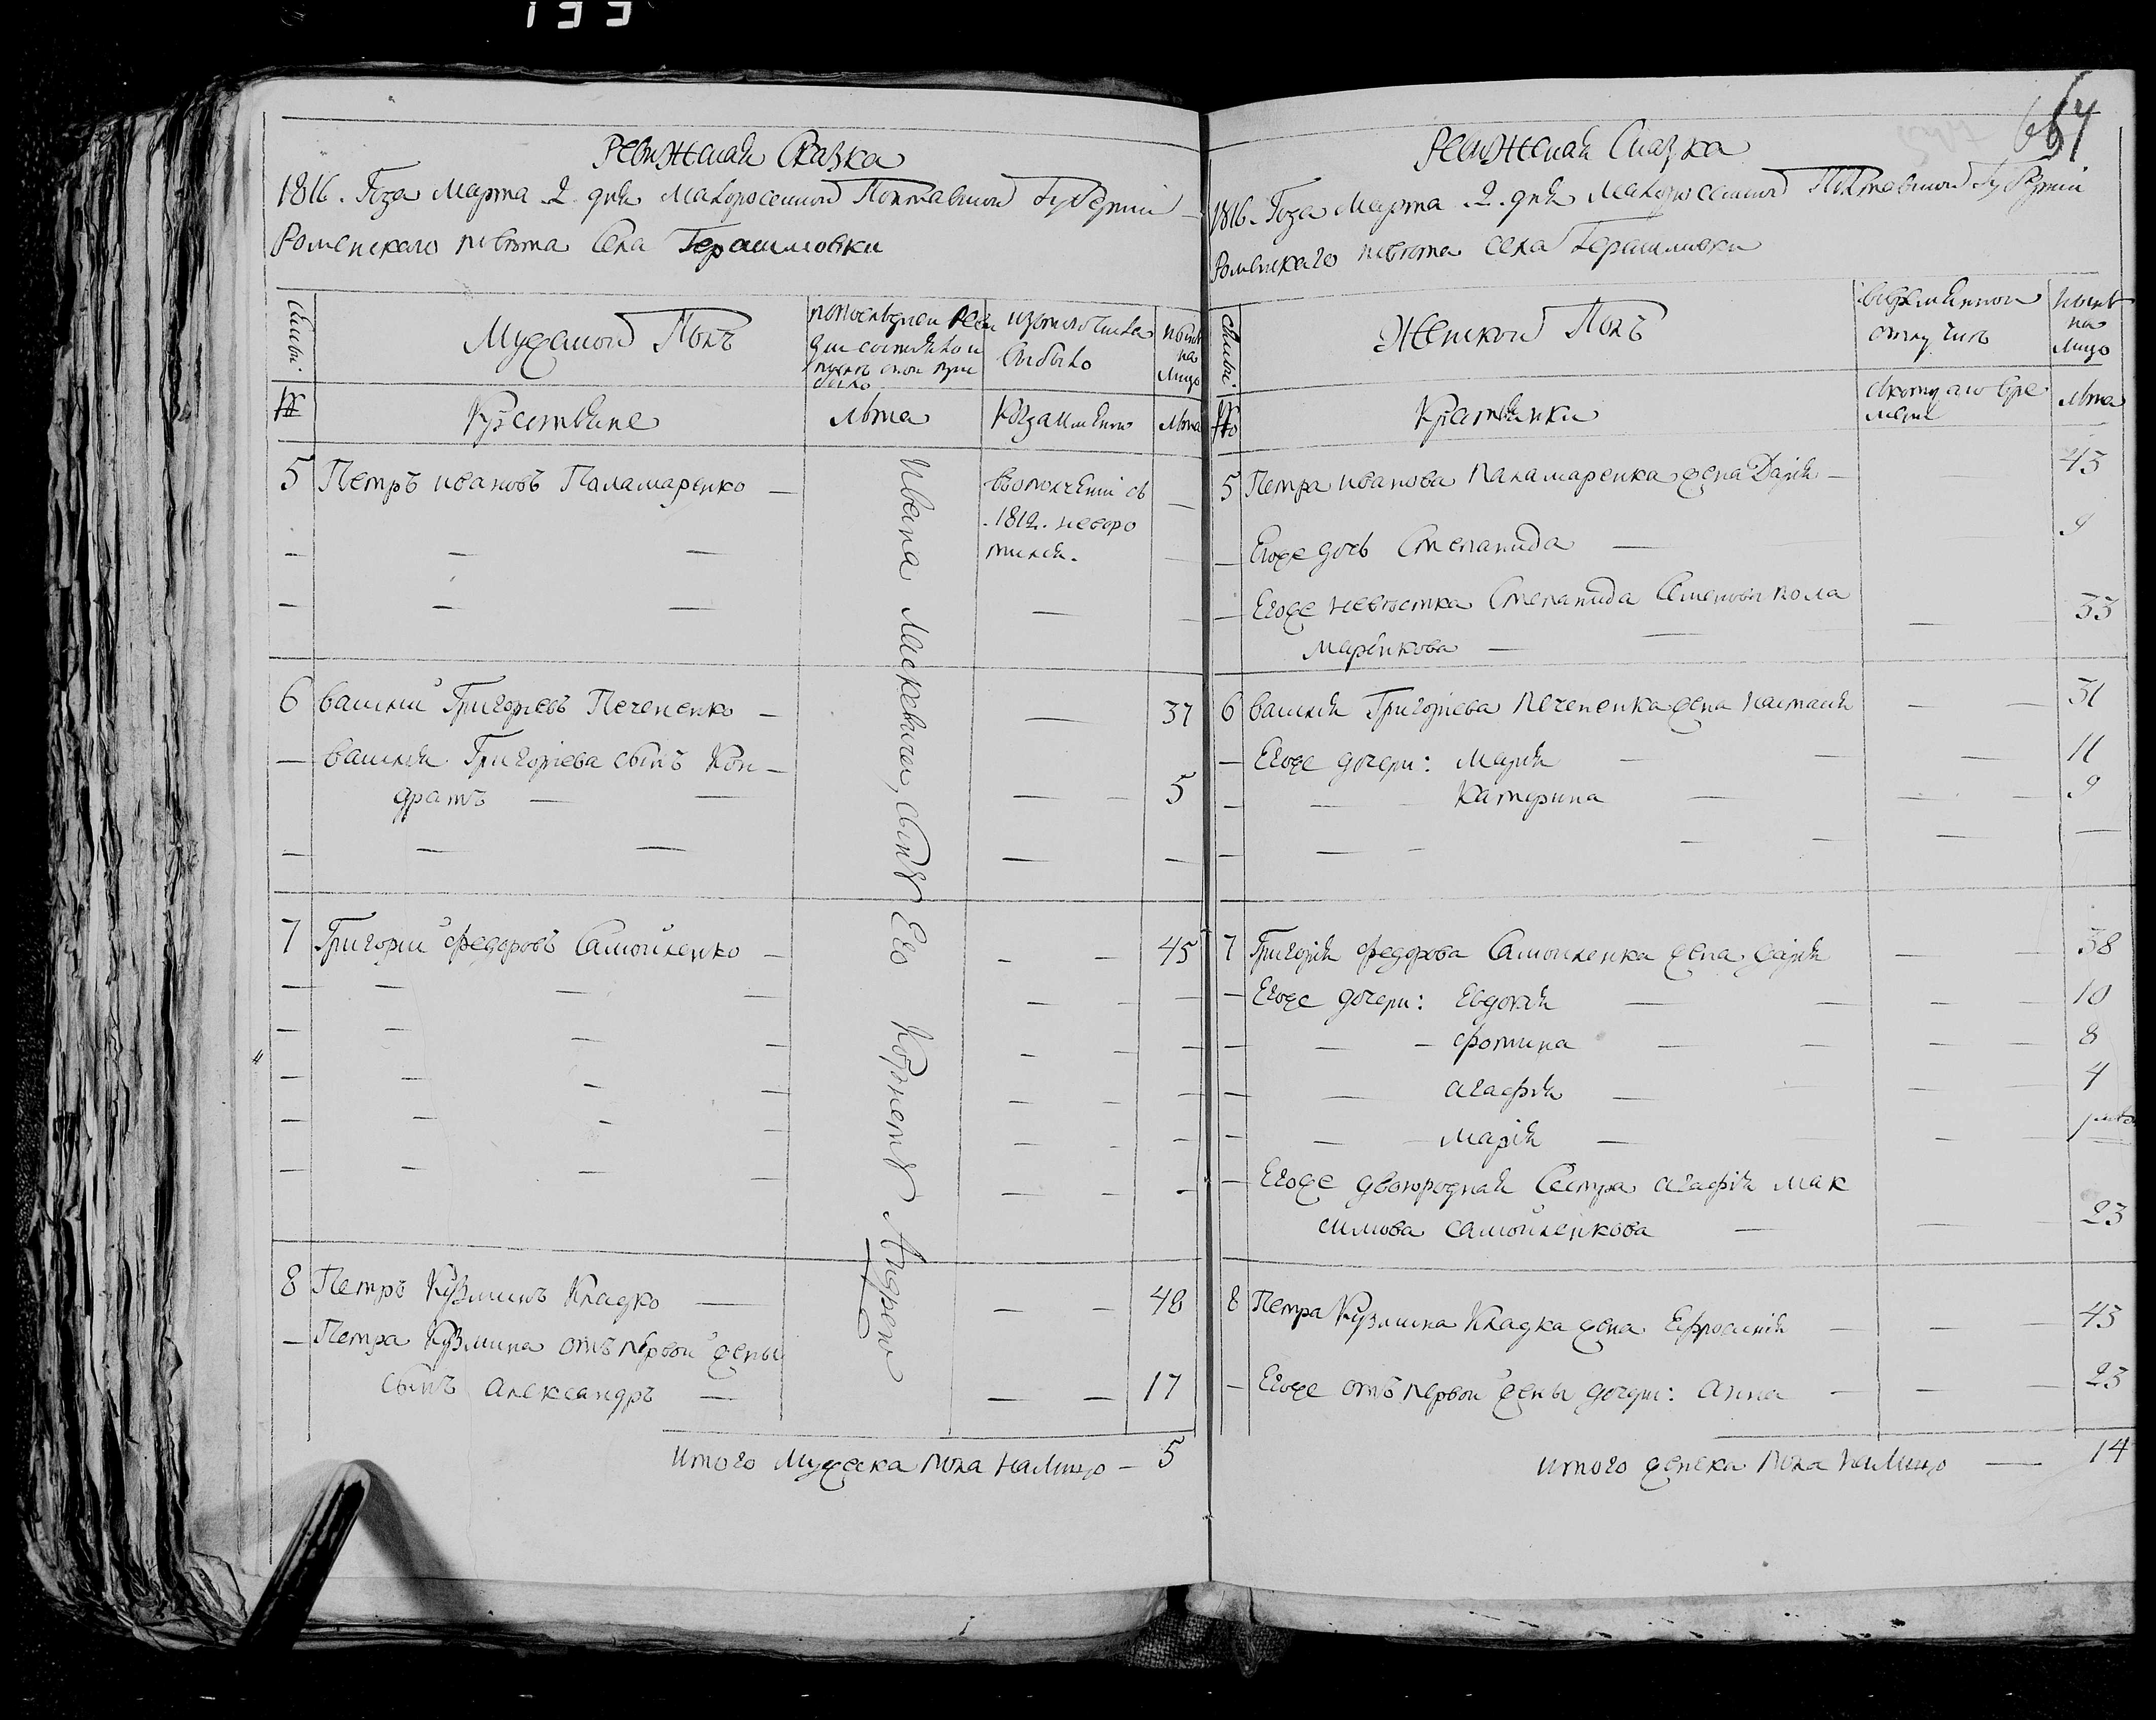 133
Ревижская Сказка
1816. Года Марта 2 дня Малоросейской Полтавской Губернии
Роменскаго повѣта Села Герасимовки
Семьи
Мужеской Полъ
изтого числа
выбыло
ныне
на
лицо
№
Крестьяне
лѣта
Когда имянно
лѣта
5 Петръ ивановъ Паламаренко —
вополчении съ
.1812. неворо
тился.
6 василий Григориевъ Печененко — 37
— василия Григориева сынъ Кон-
дратъ — — 5
7 Григорий федоровъ Самойленко — 45
8 Петръ Кузминъ Кладко — 48
— Петра Кузмина отъ первой жены
сынъ Александръ — 17
итого мужеска пола налицо — 5
Ивана Маскевича, сынъ Его Корнетъ Андрей
664
Ревижская Сказка
1816. Года Марта .2. дня Малоросейской Полтавской Губернии
Роменскаго повѣта села Герасимовки
Семьи
Женской Полъ
вовременной
отлучкѣ
ныне
на
лицо
№
Крестьянки
скотораго вре
мени
лѣта
5 Петра иванова паламаренка жена Дария — 43
— Егоже дочь Степанида — 9
— Егоже невѣстка Степанида Семенова пола
маренкова — 33
6 василия Григориева печененка жена настасия — 31
— Егоже дочери: Мария — 11
— Катерина — 9
7 Григория федорова Самойленка жена дария 38
— Егоже дочери: Евдокия — 10
— фотина — 8
— агафия — 4
— мария —
— Егоже двоюродная Сестра агафия мак
симова самойленкова — 23
8 Петра Кузмина Кладка жена Ефросиния — 43
— Егоже отъ первой жены дочери: анна — 23
итого женска пола налицо — 14